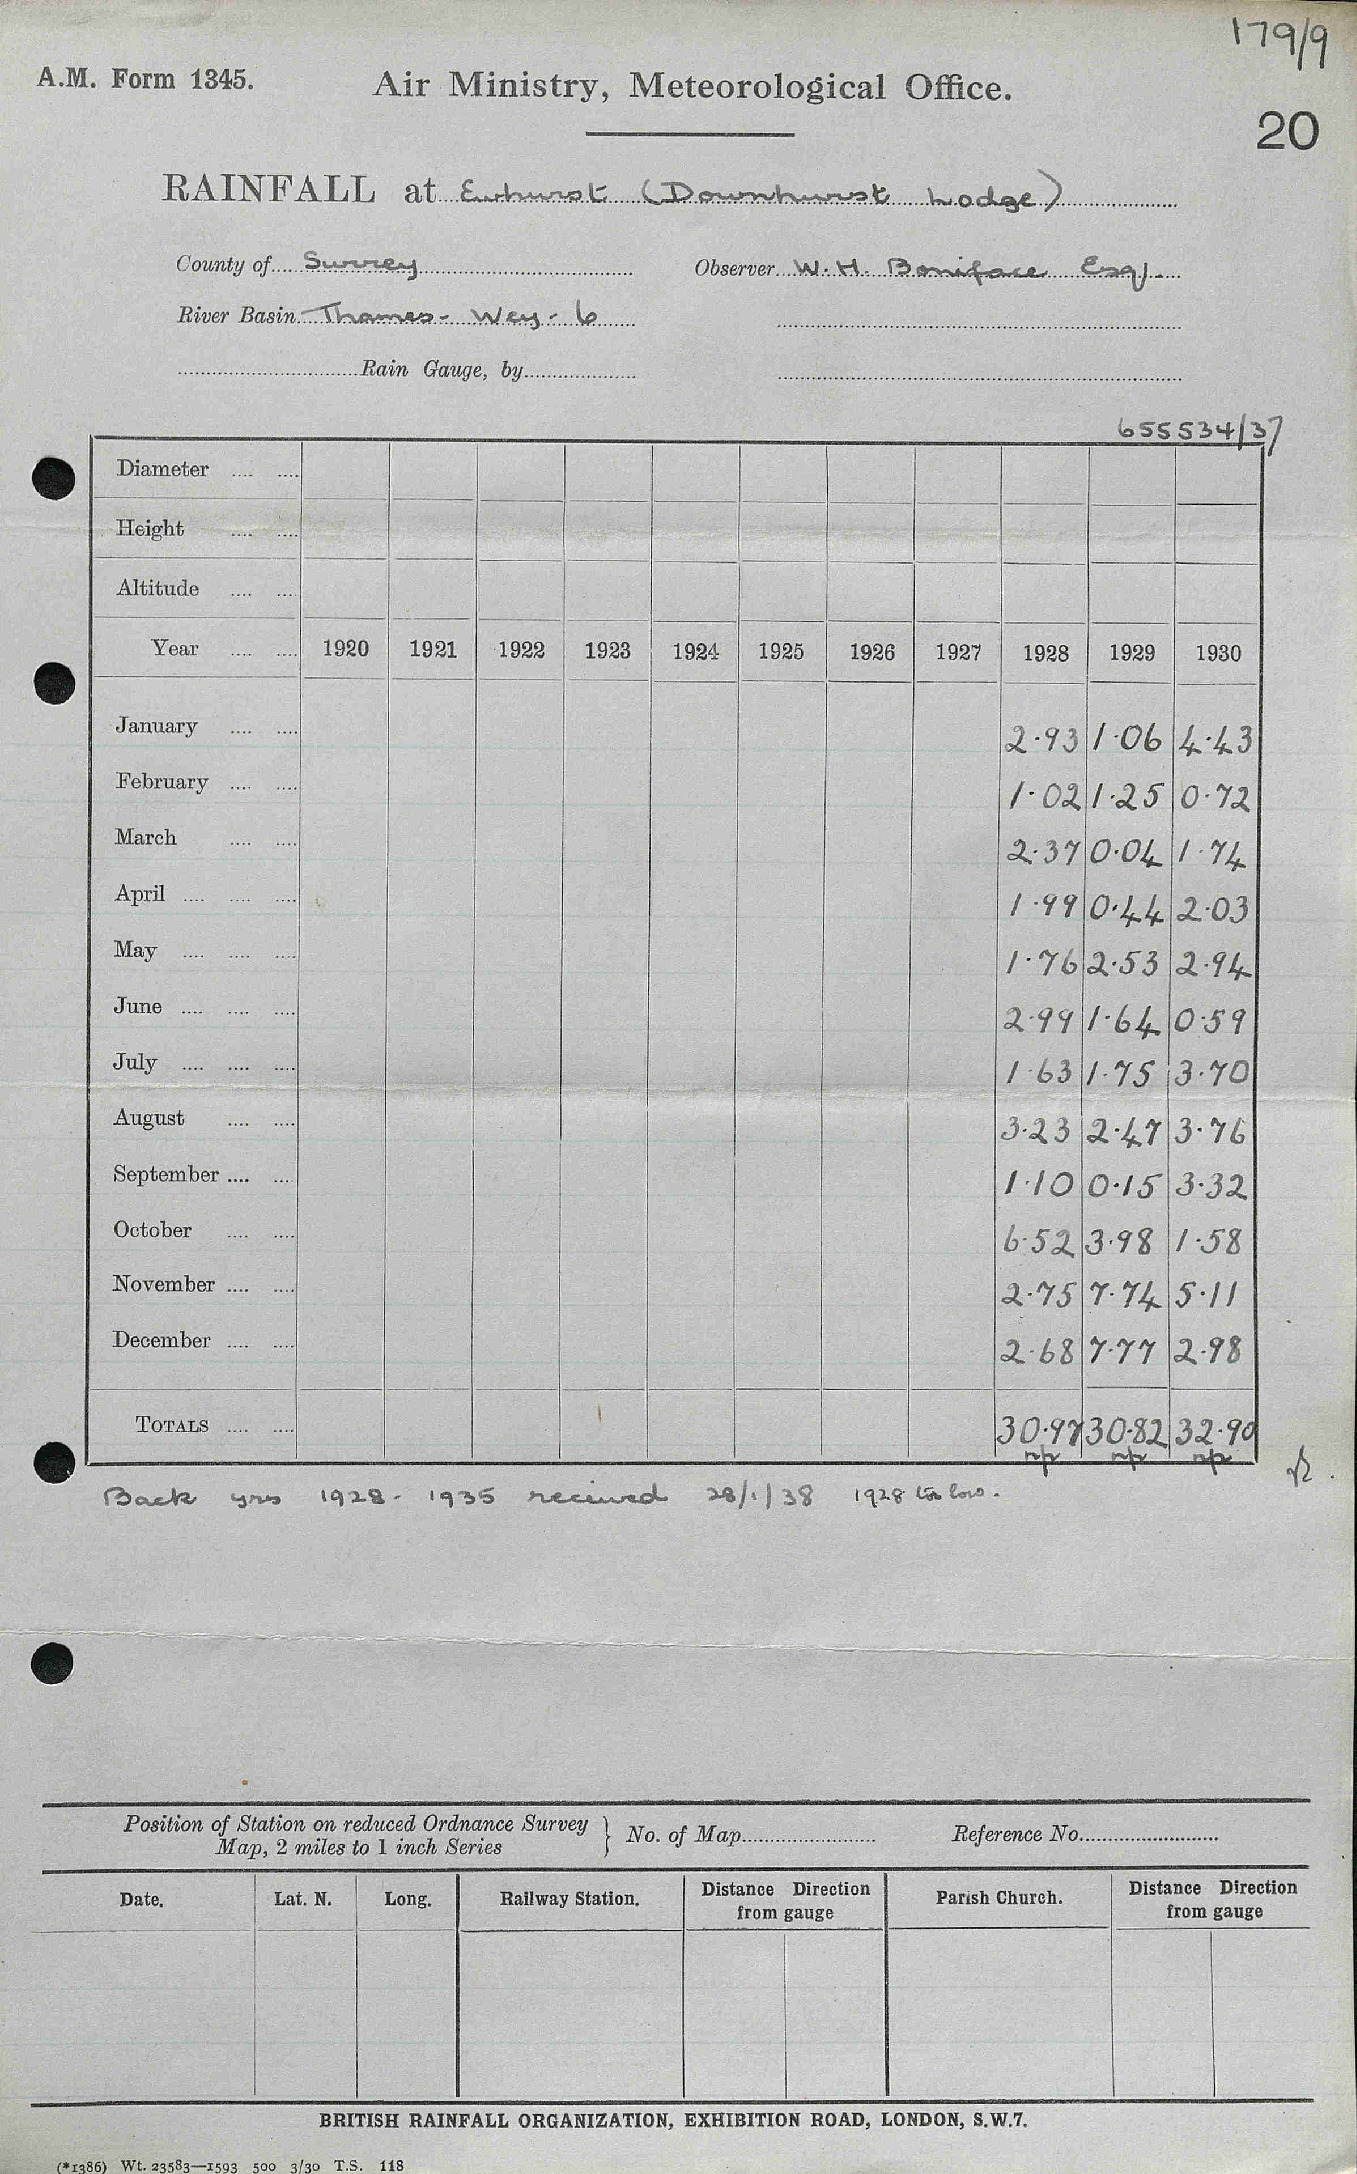 179/9
A.M. Form 1345. Air Ministry, Meteorological Office.
20
RAINFALL at Ewhurst (Downhurst Lodge)
County of Surrey Observer W. H. Boniface Esq.
River Basin Thames - Wey - 6
Rain Gauge, by
655534/37
Diameter
Height
Altitude
Year 1920 1921 1922 1923 1924 1925 1926 1927 1928 1929 1930
January 2.93 1.06 4.43
February 1.02 1.25 0.72
March 2.37 0.04 1.74
April 1.99 0.44 2.03
May 1.76 2.53 2.94
June 2.99 1.64 0.59
July 1.63 1.75 3.70
August 3.23 2.47 3.76
September 1.10 0.15 3.32
October 6.52 3.98 1.58
November 2.75 7.74 5.11
December 2.68 7.77 2.98
TOTALS 30.97 30.82 32.90
np np np
Back yrs 1928 - 1935 received 28/1/38 1928 too low.
Position of Station on reduced Ordnance Survey
Map, 2 miles to 1 inch Series } No. of Map Reference No.
Date. Lat. N. Long. Railway Station. Distance Direction from gauge Parish Church. Distance Direction from gauge
BRITISH RAINFALL ORGANIZATION, EXHIBITION ROAD, LONDON, S.W.7.
(*1386) Wt. 23583—1593 500 3/30 T.S. 118